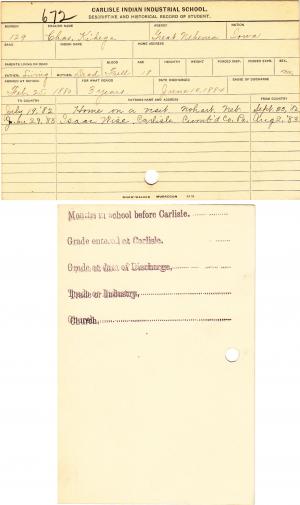 672
CARLISLE INDIAN INDUSTRIAL SCHOOL.
DESCRIPTIVE AND HISTORICAL RECORD OF STUDENT.
NUMBER ENGLISH NAME AGENCY NATION
129 Chas. Kihega Great Nehema Iowa
BAND INDIAN NAME HOME ADDRESS
PARENTS LIVING OR DEAD BLOOD AGE HEIGHT WEIGHT FORCED INSP. FORCED EXPR. SEX
FATHER Living MOTHER Dead Full 18
ARRIVED AT SCHOOL FOR WHAT PERIOD DATE DISCHARGED CAUSE OF DISCHARGE
Feb. 25 3 years June 10, 1884
TO COUNTRY PATRONS NAME AND ADDRESS FROM COUNTRY
July 19, '82 Home on a visit. Nohart. Neb. Sept. 23, 82
June 29, 83 Isaac Wise, Carlisle Cumb'd Co. Pa. Aug 2, '83
Months in school before Carlisle.
Grade entered at Carlisle.
Grade at date of Discharge,
Trade or Industry,
Church,